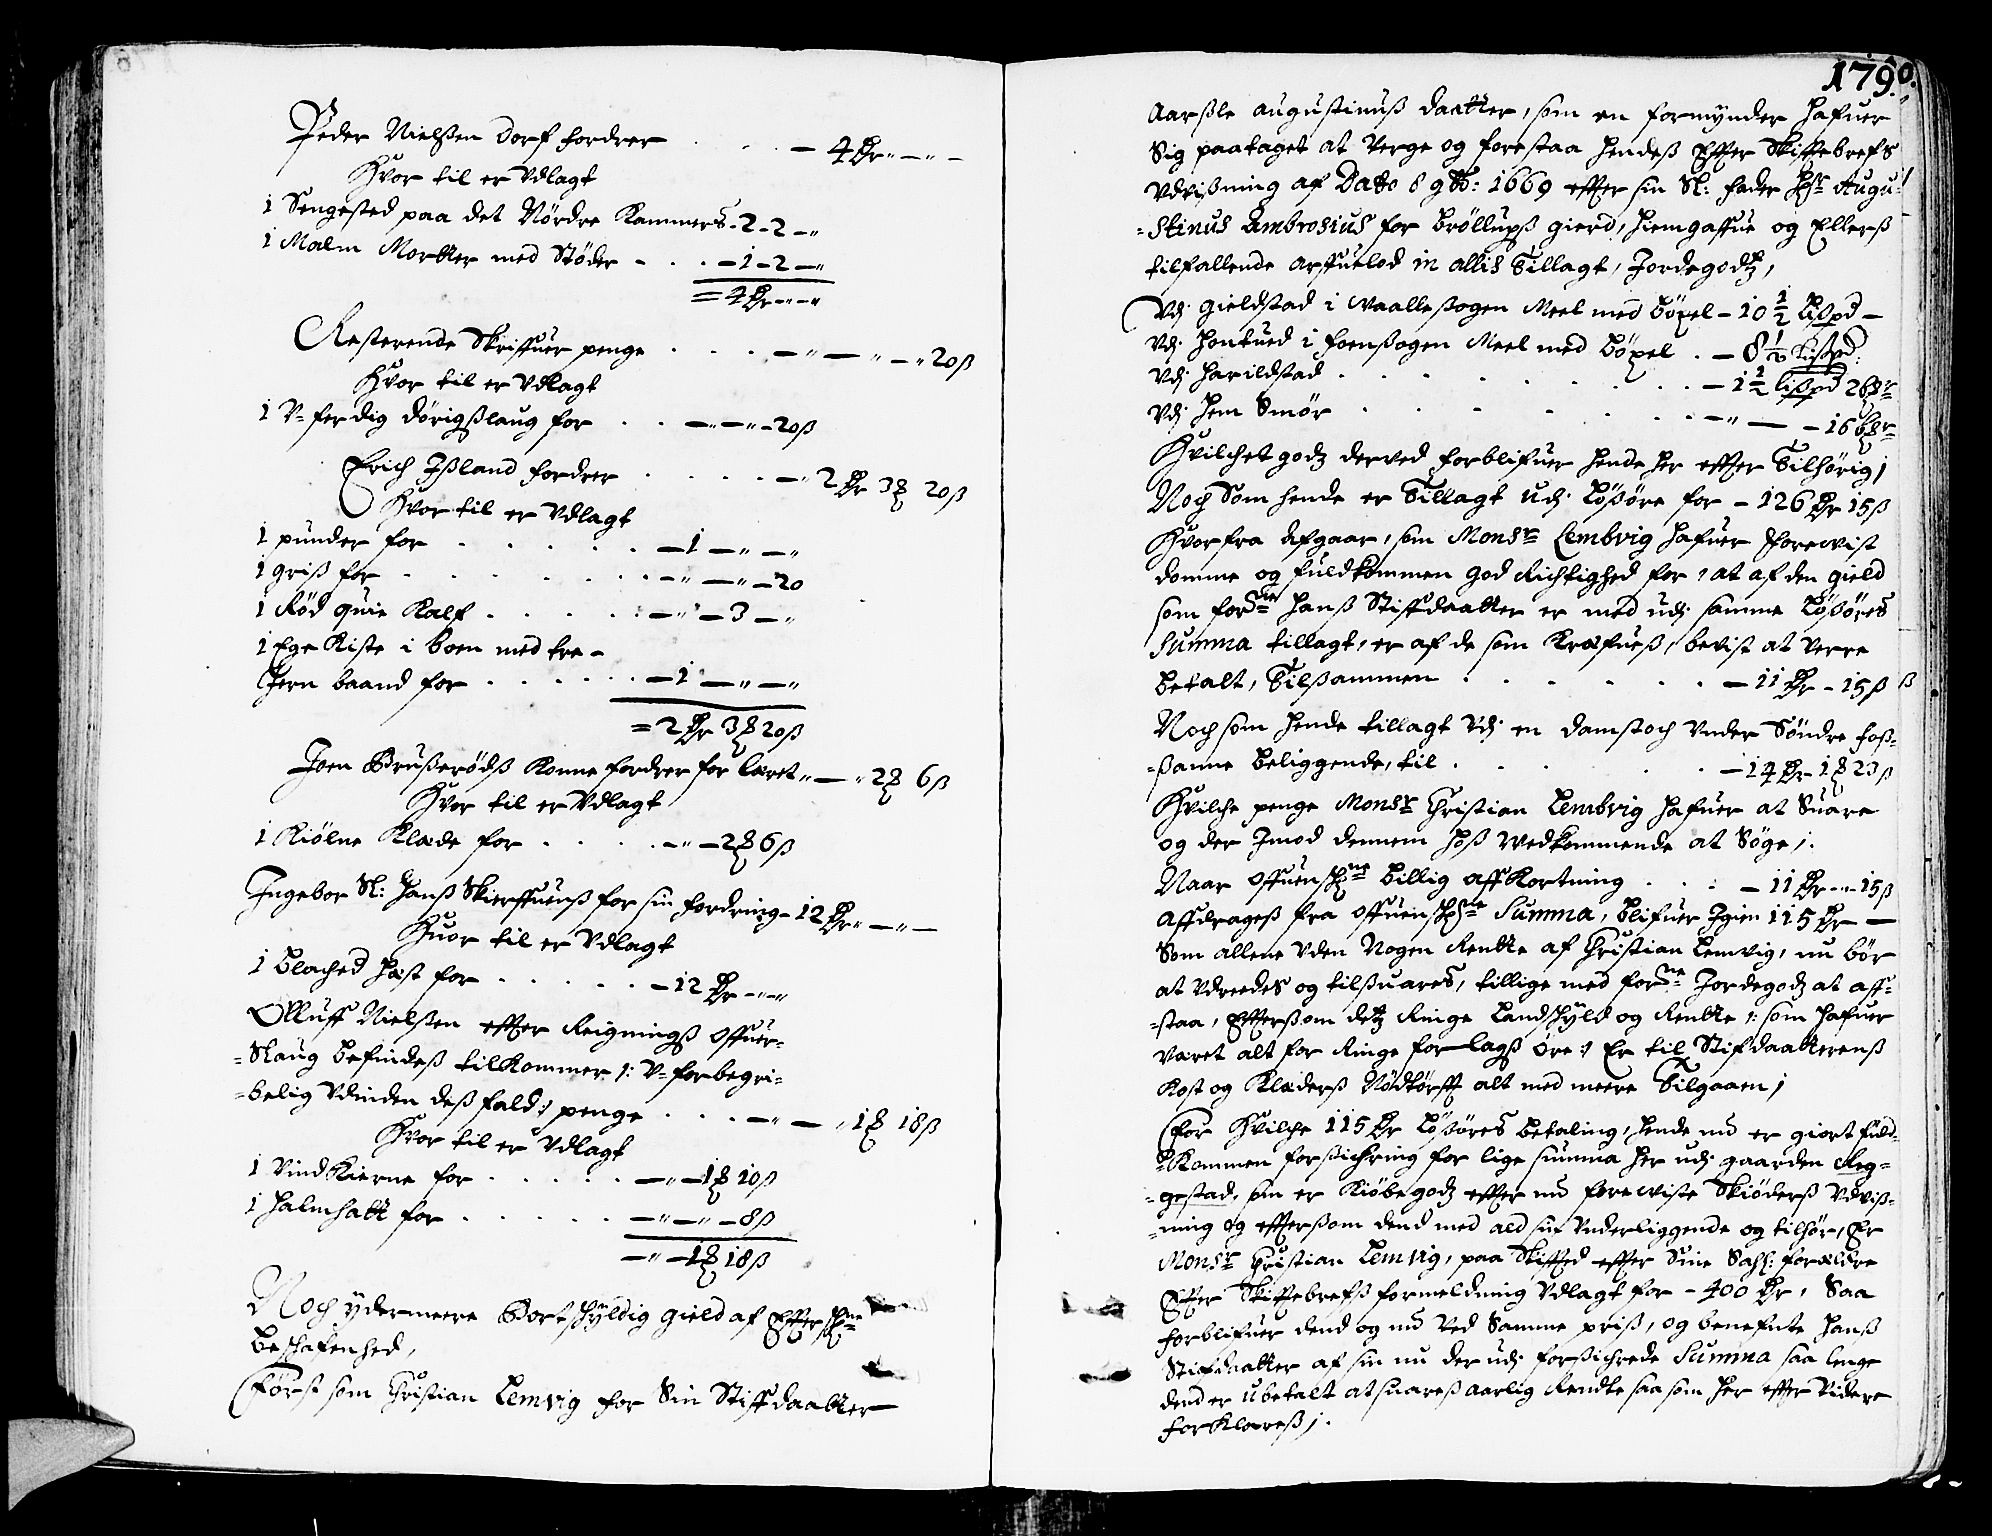 Peder Nielßen Dorf fordrer . . . . – 4 Dr „ – „ –
Hvor til er Vdlagt
1 Sengested paa det Nørdre Kammers - 2 - 2 - „
1 Malm Mortter med Støder - . . - 1 - 2 - „
= 4 Dr - „ - „
Resterende Skriffuer penge . . . . – „ – „ – „ 20 ß
Hvor til er Vdlagt
1 V-ferdig dørigßlaug for . . – „ – „ – 20 ß
Erich Ißland fordrer . . . . . – „ 2 Dr 3 ₰ 20 ß
Hvor til er Vdlagt
1 pünder for . . . . . – 1 – „ – „
1 griß for . . . . . . – „ – „ – 20
1 Rød quie Kalf . . . . . – „ – 3 – „
1 Ege Kiste i Boen med tre -
Jern baand for . . . . . . – 1 – „ – „
= 2 Dr 3 ₰ 20 ß
Joen Brußerødß Konne fordrer for læret „ – „ 2 ₰ 6 ß
Hvor til er Vdlagt
1 Kiølne Klæde for . . . . . – „ – 2 ₰ 6 ß
Ingebor Sl: Hanß Skierffuenß for sin fordring – 12 Dr „ – „ –
Huor til er Vdlagt
1 blached Hæst for . . . . . – 12 Dr – „ – „
Olluff Nielßen effter Reigningß Offuer-
-Slaug befindeß tilkommer /: V-forbegri-
-belig Vdinden deß fald :/ penge . . . – „ – „ 1 ₰ 18 ß
Hvor til er Vdlagt
1 Vind Kierne for . . . . . – „ – 1 ₰ 10 ß
1 Halmhatt for . . . . . – „ – „ – 8 ß
– „ – 1 ₰ 18 ß
Noch ÿdermeere Bortschÿldig gield af Effterschne
Beschafenhed,
Først som Christian Lemvig for Sin Stiffdaatter
179.
Aarßle augustinuß daatter, som en formynder Hafuer
Sig paataget at Verge og forestaa Hendeß Effter Skiftebrefs
Vdvißning af Dato 8 9tb: 1669 effter sin Sl: fader Hr Augu-
-stinus Ambrosius for brøllupß gierd, Hiemgaffue og Ellerß
tilfallende arffuelod in allis Tillagt, Jordegodtz,
Vdj gieldstad i Waalleßogen Meel med bøxel – 10 ½ Lißpd –
Vdj Hontued i foenßogen Meel med bøxel . – 8 ½ Lißpd:
Vdj Harildstad . . . . . . . . – 1 ½ lißpd 2 bßr
Vdj Hem Smør . . . . . . . – „ – – 16 bßr
Hvilchet godtz derved forblifuer Hende her effter Tilhørig;
Noch Som hende er Tillagt udj Løßøre for – 126 Dr 15 ß
Hvorfra Afgaar, som Monsr Lembvig Hafuer forewist
domme og fuldkommen god Richtighed for, at af den gield
som forne Hanß Stiffdaatter er med udj samme Løßøres
Summa tillagt, er af de som Kræfueß, bevist at Verre
betalt, Tilßammen . . . . . . . – 11 Dr – 15 ß
Noch som Hende tillagt Vdj en damstoch Vnder Søndre Foß-
-ßanne beliggende, til . . . . . . – 14 Dr 1 ₰ 23 ß
Hvilche penge Monsr Christian Lembvig Hafuer at Suare
og der Imod dennem hoß Wedkommende at Søge;.
Naar offuenschne billig affkortning . . . – 11 Dr – „ – 15 ß
affdrageß fra offuenschne Summa, blifuer Igien 115 Dr –
Som allene Vden Nogen Rentte af Christian Lemvig, nu bør
at Vdreedes og tilsuares, tillige med forne Jordegodtz at aff-
-staa, Effterßom dette Ringe Landschÿld og Rentte /: som Hafuer
Været alt for Ringe for lagß øre :/ Er til Stifdaatterenß
Kost og Klæderß Nødtørfft alt med meere Tilgaaen;
For Hvilche 115 Dr Løßøres betaling, Hende nu er giort fuld-
-kommen forßichring for lige summa Her udj gaarden Reg-
-gestad, som er Kiøbegodtz effter nu forewiste Skiøderß Vdviß-
-ning og effterßom dend med ald sin Vnderliggende og tilhør, Er
Monsr Christian Lemvig, paa Skifted effter Sine Sahl: foreldre
Effter Skiftebrefß formeldning Vdlagt for – 400 Dr, Saa
forblifuer dend og nu Ved Samme priß, og benefnte Hanß
Stifdaatter af sin nu der udj forßichrede Summa saa lenge
dend er ubetalt at suareß aarlig Rendte saa som Her effter Videre
forklareß;.